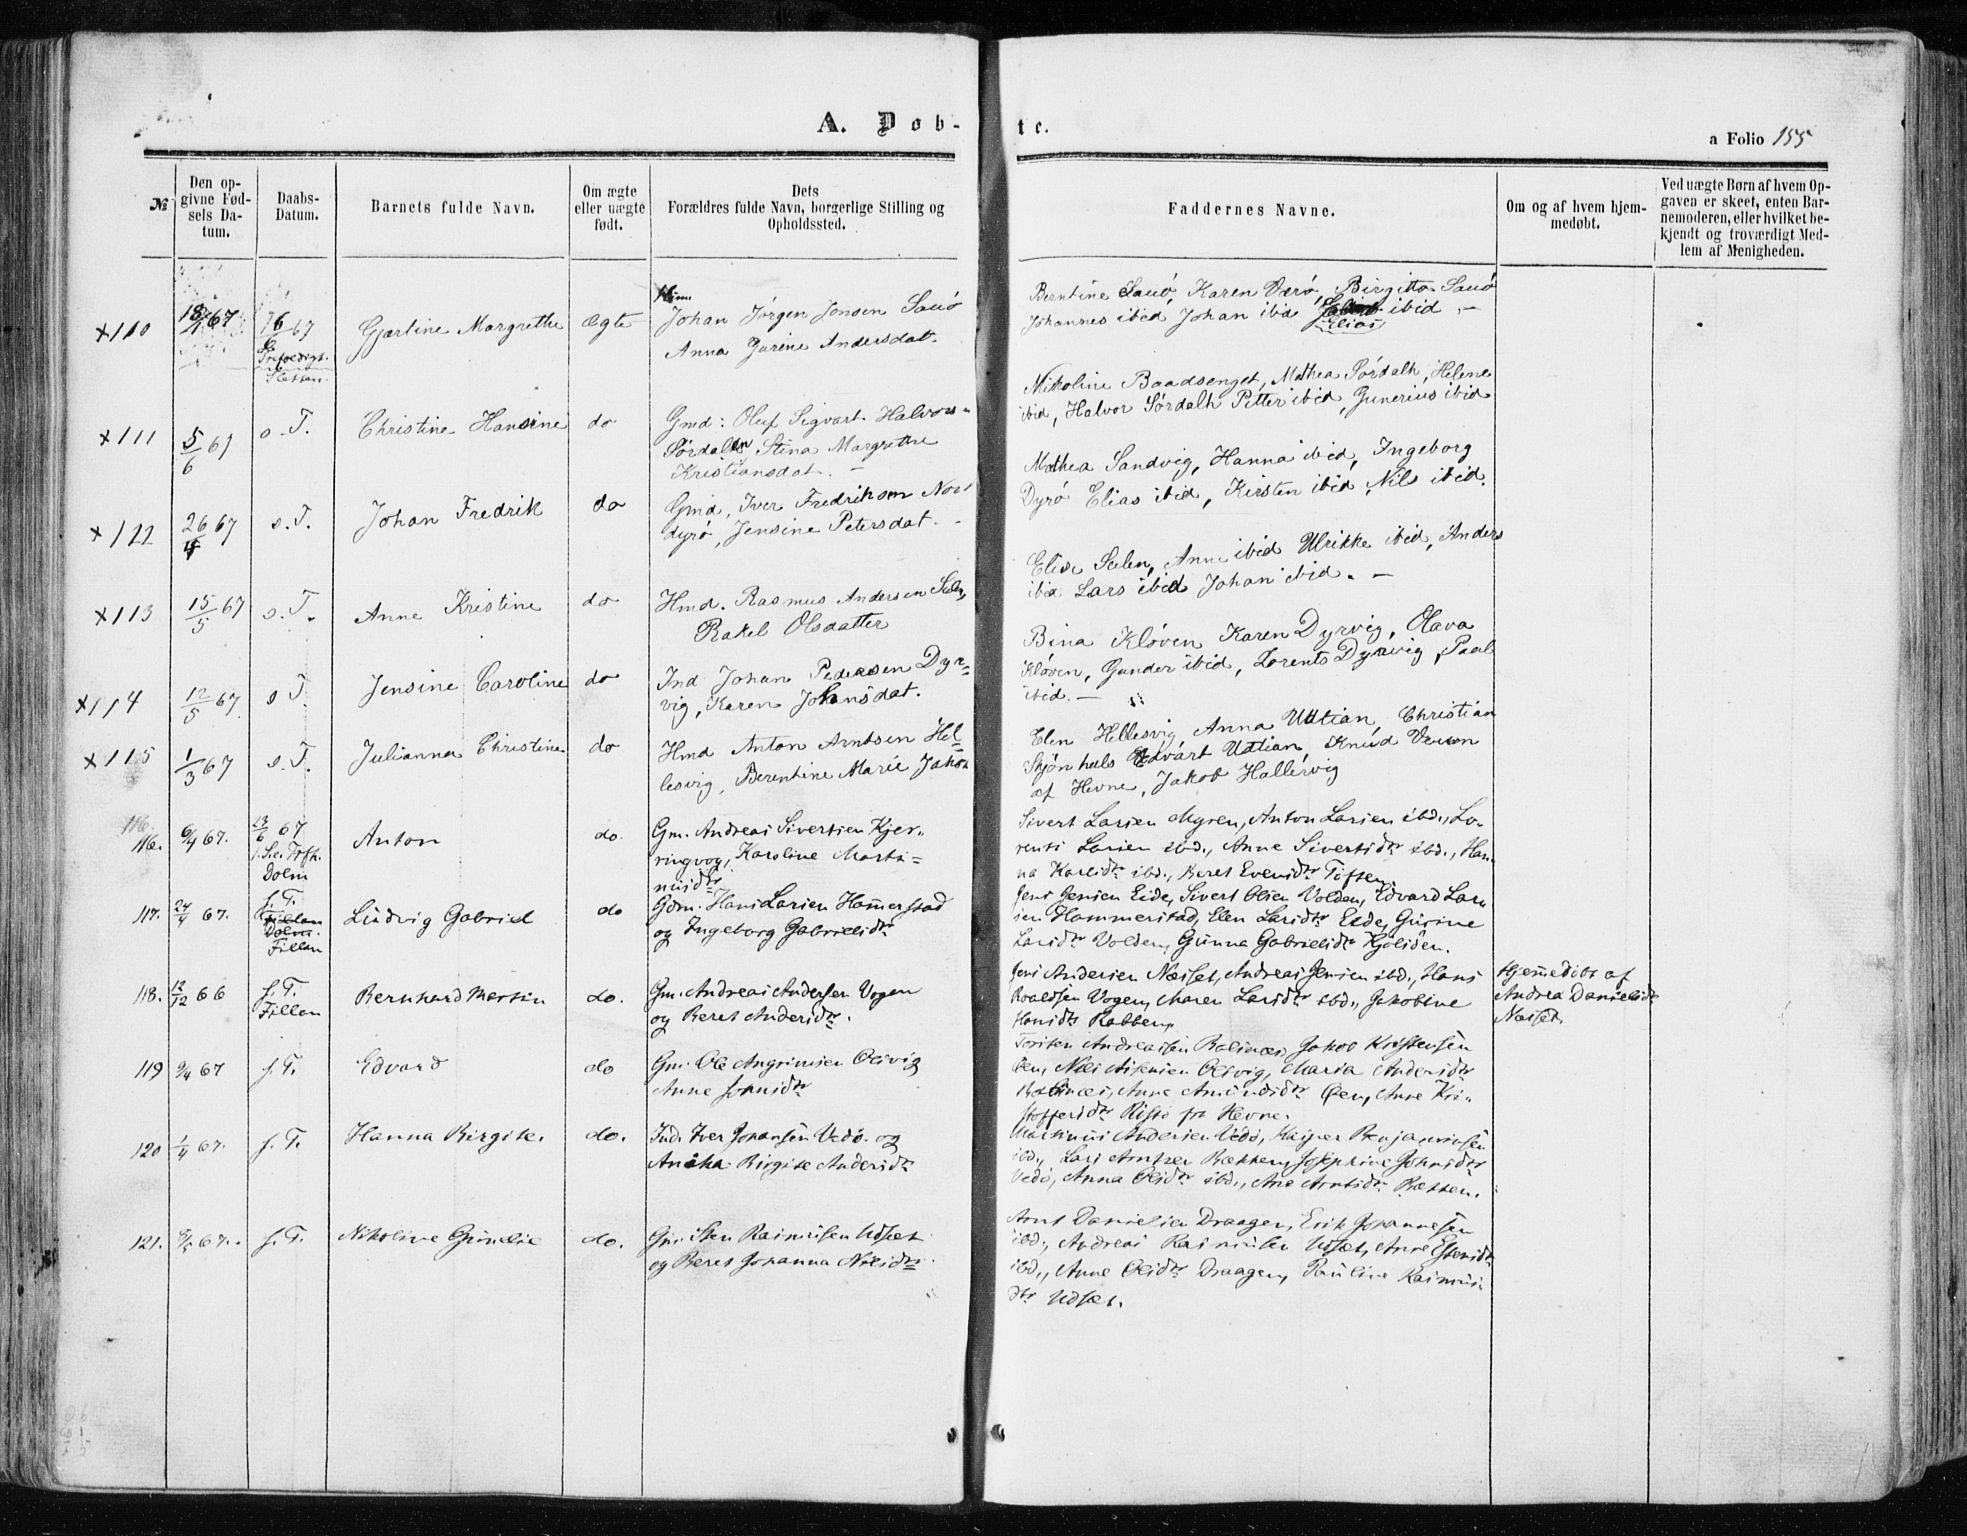 A. Døb-
te.
a Folio 155
№
Den op-
givne Fød-
sels Da-
tum.
Daabs-
Datum.
Barnets fulde Navn.
Om ægte
eller uægte
født.
Dets
Forældres fulde Navn, borgerlige Stilling og
Opholdssted.
Faddernes Navne.
Om og af hvem hjem-
medøbt.
Ved uægte Børn af hvem Op-
gaven er skeet, enten Bar-
nemoderen, eller hvilket be-
kjendt og troværdigt Med-
lem af Menigheden.
x110 67 Gjertine Margrethe Ægte Johan Jørgen Jonsen Sauø
Anna Andersdat.
Berntine Sauø, Karen Birgitta Sauø
Johannes ibid Johan ibid Elias ibid
x111 5/6 67 s. T. Christine Hansine do Gmd: Oluf Sigvart Halvors-
Stina Margrethe
Kristiansdat. –
Nikoline Baadsenget, Mathea Sørdalh, Helene
ibid, Halvor Sørdalh Petter ibid, Gunerius ibid
x112 26/4 67 s. T. Johan Fredrik do Gmd, Iver Fredriksen Nor
dyrø, Jensine Petersdat. –
Mathea Sandvig, Hanna ibid, Ingeborg
Dyrø Elias ibid, Kirsten ibid, Nils ibid.
x113 15/5 67 s. T. Anne Kristine do Hmd. Rasmus Andersen
Rakel Olsdatter
Elise Selen, Anne ibid Ulrikke ibid, Anders
ibid Lars ibid Johan ibid. –
x114 12/5 67 s T. Jensine Caroline do Ind Johan Pedersen Dyr=
vig, Karen Johansdat.
Bina Kløven Karen Dyrvig, Olava
Kløven, Gunder ibid, Lorents Dyrvig, Paal
ibid. –
x115 1/3 67 s. T. Julianna Christine do Hmd Anton Arntsen Hel=
lesvig, Berentine Marie
Elen Hellesvig Anna Uttian Christian
Edvart Uttian Knud
af Hevne, Jakob Hallervig
116. 6/4 67. 23/6 67 Anton do. Gm. Andreas Sivertsen Kjer-
ringvog, Karoline
Dolm
Sivert Larsen Myren, Anton Larsen ibd., Lo-
rents Larsen ibd., Anne Sivertsdtr ibd., Han-
na Karlsdtr ibd., Beret Evensdtr Tiften.
117. 24/4 67. f. T. Ludvig Gabriel do Gdm. Hans Larsen Hamerstad
og Ingeborg Gabrielsdtr
Fillan
Jens Jensen Eide, Sivert Olsen Volden, Edvard Lar-
sen Hammerstad, Elen Larsdtr Eide, Gurine
Larsdtr Volden, Gunna Gabrielsdtr
118. 12/12 66 f. T. Bernhard Martin do. Gm. Andreas Andersen Vogen
Fillan og Beret Andersdtr.
Jens Andersen Næsset, Andreas Jensen ibd., Hans
Vogen, Maren Larsdtr ibd., Jakobine
Hansdtr Rabben.
Hjemmedøbt af
Andrea Danielsdtr
Næsset.
119 67 f. T. Edvard do Gm. Ole
Anne
Andreassen Jakob Kristensen
Maria Andersdtr
Anne Kri-
stoffersdtr fra Hevne.
120 1/4 67. f. T. Hanna Birgite. do. Ind. Iver Johansen Vedø og
Birgite Andersdtr
Andersen Vedø, Kasper Benjaminsen
ibd., Lars Arntsen Bekken, Josephine Johnsdtr
Vedø, Anna Olsdtr ibd., Ane Arntsdtr
121. 67. f. T. Nikoline do. Gm. Rasmusen Udset
og Beret Johanna Nilsdtr
Arnt Danielsen Draagen, Erik Johannesen
ibd., Andreas Rasmusen Udset, Anne
ibd., Anne Olsdtr Draagen, Pauline Rasmus-
dtr Udset.